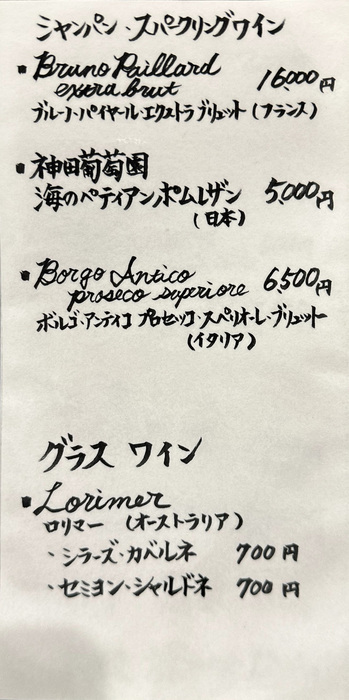 シャンパン・スパークリングワイン
▪ Bruno Paillard
extra brut 16,000円
ブルーノ・パイヤール・エクストラ ブリュット (フランス)
▪ 神田葡萄園
海のペティアン ポムレザン 5,000円
(日本)
▪ Borgo Antico
proseco superiore 6,500円
ボルゴ・アンティコ プロセッコ・スペリオーレ・ブリュット
(イタリア)
グラス ワイン
▪ Lorimer
ロリマー (オーストラリア)
・シラーズ・カベルネ 700円
・セミヨン・シャルドネ 700円